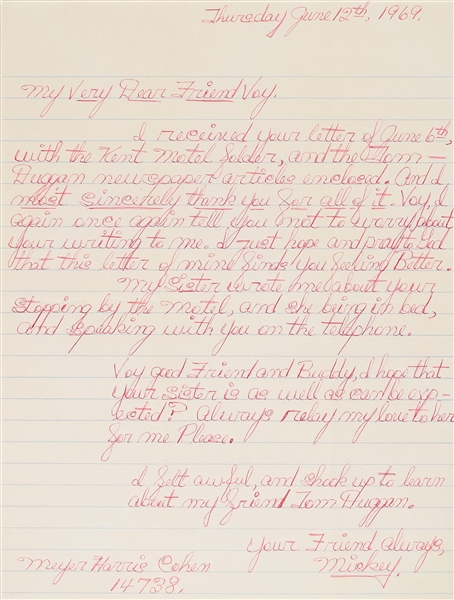 Thursday June 12th, 1969.
My Very Dear Friend Voy.
I received your letter of June 6th,
with the Kent Motel folder, and the Tom
Duggan newspaper articles enclosed. And I
most sincerely thank you for all of it. Voy, I
again once again tell you not to worry about
your writing to me. I just hope and pray to God
that this letter of mine finds you feeling Better.
My sister wrote me about your
stopping by the motel, and she being in bed,
and speaking with you on the telephone.
Voy good Friend and Buddy, I hope that
your sister is as well as can be exp-
ected? Always relay my love to her
for me Please.
I felt awful, and shook up to learn
about my friend Tom Duggan.
Your Friend, always,
Mickey.
Meyer Harris Cohen
14738.